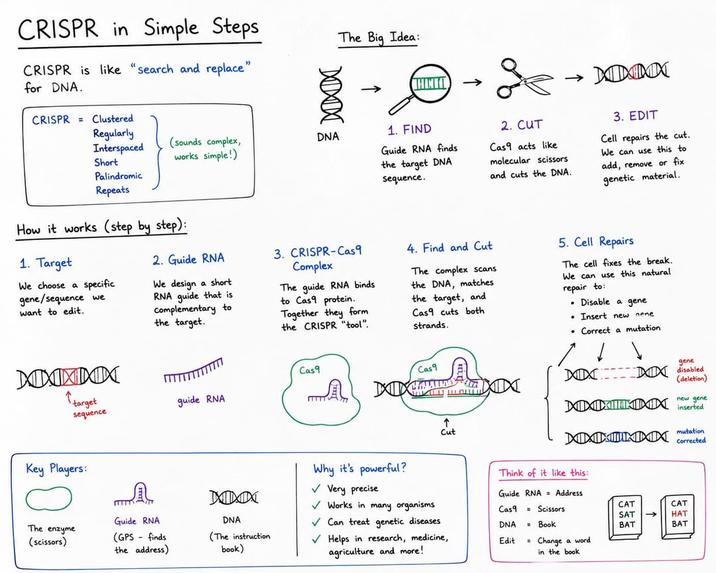 CRISPR in Simple Steps
CRISPR is like "search and replace"
for DNA.
CRISPR = Clustered
Regularly
Interspaced
Short
Palindromic
Repeats
(sounds complex,
works simple!)
The Big Idea:
DNA
1. FIND
Guide RNA finds
the target DNA
sequence.
2. CUT
Cas9 acts like
molecular scissors
and cuts the DNA.
3. EDIT
Cell repairs the cut.
We can use this to
add, remove or fix
genetic material.
How it works (step by step):
1. Target
We choose a specific
gene/sequence we
want to edit.
target
sequence
2. Guide RNA
We design a short
RNA guide that is
complementary to
the target.
guide RNA
3. CRISPR-Cas9
Complex
The guide RNA binds
to Cas9 protein.
Together they form
the CRISPR "tool".
Cas9
4. Find and Cut
The complex scans
the DNA, matches
the target, and
Cas9 cuts both
strands.
Cas9
Cut
5. Cell Repairs
The cell fixes the break.
We can use this natural
repair to:
• Disable a gene
• Insert new
• Correct a mutation
gene
disabled
(deletion)
new gene
inserted
mutation
corrected
Key Players:
The enzyme
(scissors)
Guide RNA
(GPS - finds
the address)
DNA
(The instruction
book)
Why it's powerful?
✓ Very precise
✓ Works in many organisms
✓ Can treat genetic diseases
✓ Helps in research, medicine,
agriculture and more!
Think of it like this:
Guide RNA = Address
Cas9 = Scissors
DNA = Book
Edit = Change a word
in the book
CAT
SAT
BAT
CAT
HAT
BAT